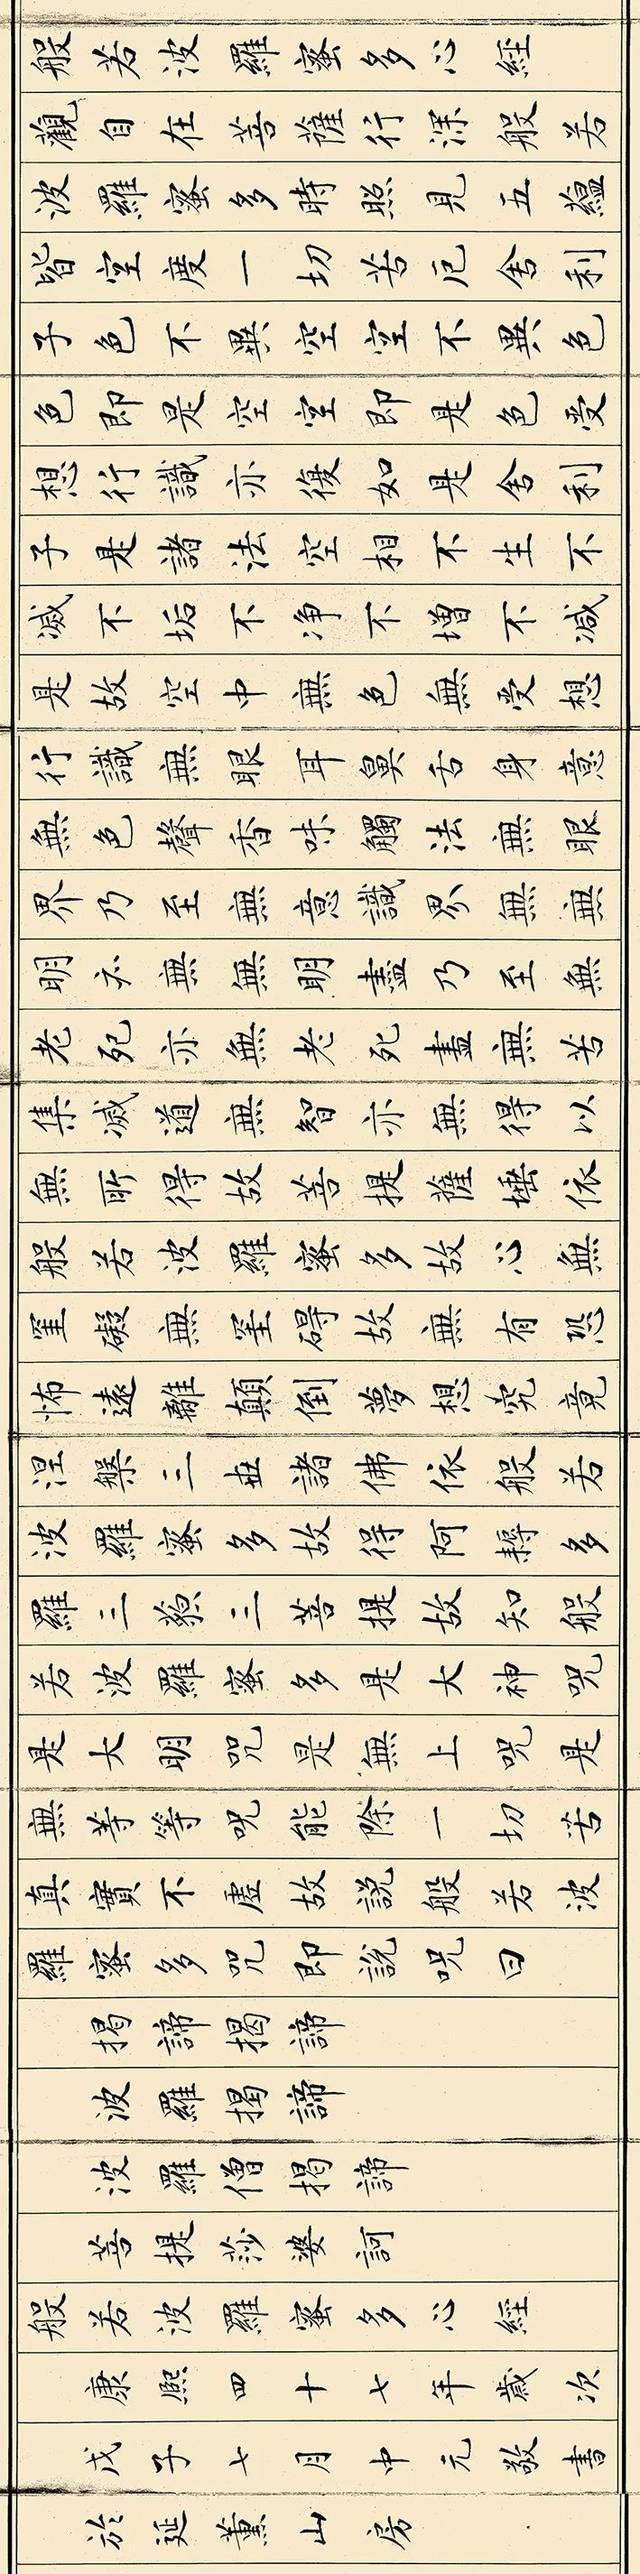 般若波羅蜜多心經
觀自在菩薩行深般若
波羅蜜多時照見五蘊
皆空度一切苦厄舍利
子色不異空空不異色
色即是空空即是色受
想行識亦復如是舍利
子是諸法空相不生不
滅不垢不净不增不减
是故空中無色無受想
行識無眼耳鼻舌身意
無色聲香味觸法無眼
界乃至無意識界無無
明亦無無明盡乃至無
老死亦無老死盡無苦
集滅道無智亦無得以
無所得故菩提薩埵依
般若波羅蜜多故心無
罣礙無罣碍故無有恐
怖遠離顛倒夢想究竟
涅槃三世諸佛依般若
波羅蜜多故得阿耨多
羅三藐三菩提故知般
若波羅蜜多是大神咒
是大明咒是無上咒是
無等等咒能除一切苦
真實不虛故説般若波
羅蜜多咒即説咒曰
揭諦揭諦
波羅揭諦
波羅僧揭諦
菩提莎婆訶
般若波羅蜜多心經
康熙四十七年歲次
戊子七月中元敬書
於延薰山房